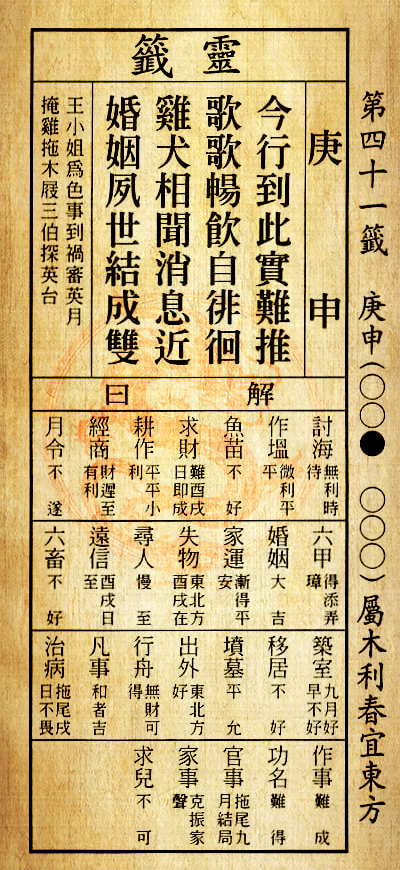 第四十一籤 庚申(○○● ○○○)屬木利春宜東方
靈籤
庚申
今行到此實難推
歌歌暢飲自徘徊
雞犬相聞消息近
婚姻夙世結成雙
王小姐為色事到禍審英月
掩雞拖木屐三伯探英台
解曰
討海 無利時待
作塭 微利平平
魚苗 不好
求財 難酉戌日即成
耕作 平平小利
經商 財遲至有利
月令 不遂
六甲 得添弄璋
婚姻 大吉
家運 漸得平安
失物 東北方酉戌在
尋人 慢至
遠信 酉戌日至
六畜 不好
築室 九月好早不好
移居 不好
墳墓 平允
出外 東北方好
行舟 無財可得
凡事 和者吉
治病 拖尾戌日不畏
作事 難成
功名 難得
官事 拖尾九月結局
家事 克振家聲
求兒 不可